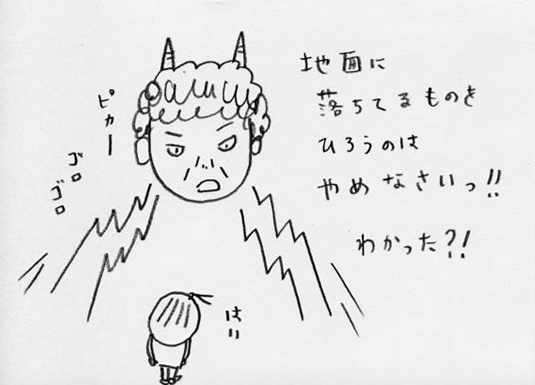 地面に
落ちてるものを
ひろうのは
やめなさいっ!!
わかった?!
ピカー
ゴロ
ゴロ
はい